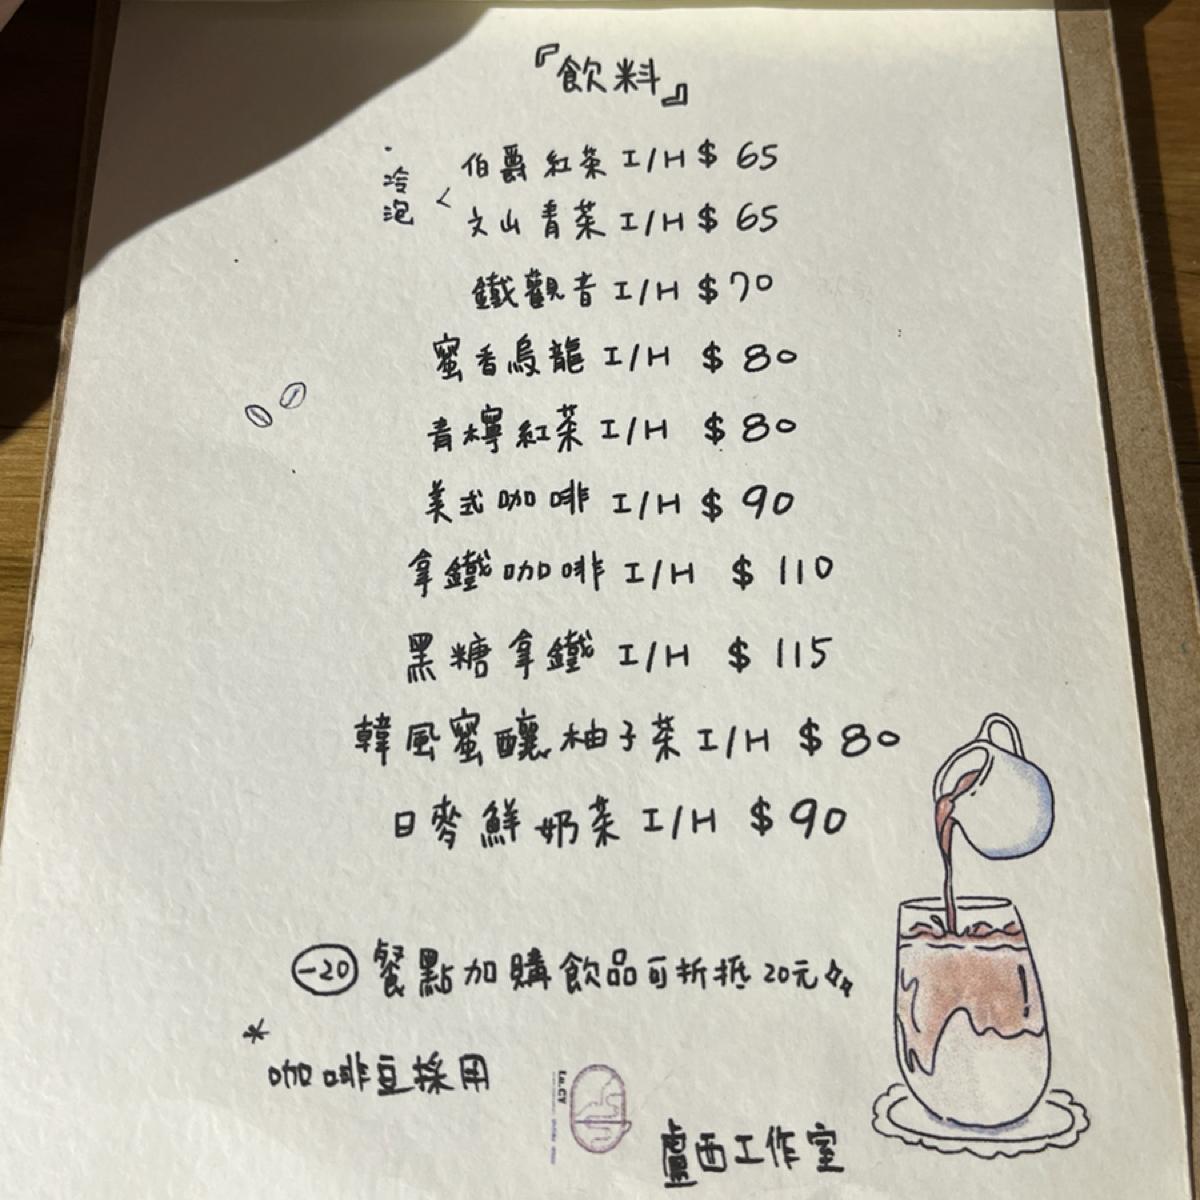 『飲料』
冷泡 < 伯爵紅茶 I/H $ 65
文山青茶 I/H $ 65
鐵觀音 I/H $ 70
蜜香烏龍 I/H $ 80
青檸紅茶 I/H $ 80
美式咖啡 I/H $ 90
拿鐵咖啡 I/H $ 110
黑糖拿鐵 I/H $ 115
韓風蜜釀柚子茶 I/H $ 80
日麥鮮奶茶 I/H $ 90
-20 餐點加購飲品可折抵20元
* 咖啡豆採用
Lu.CY
盧西工作室